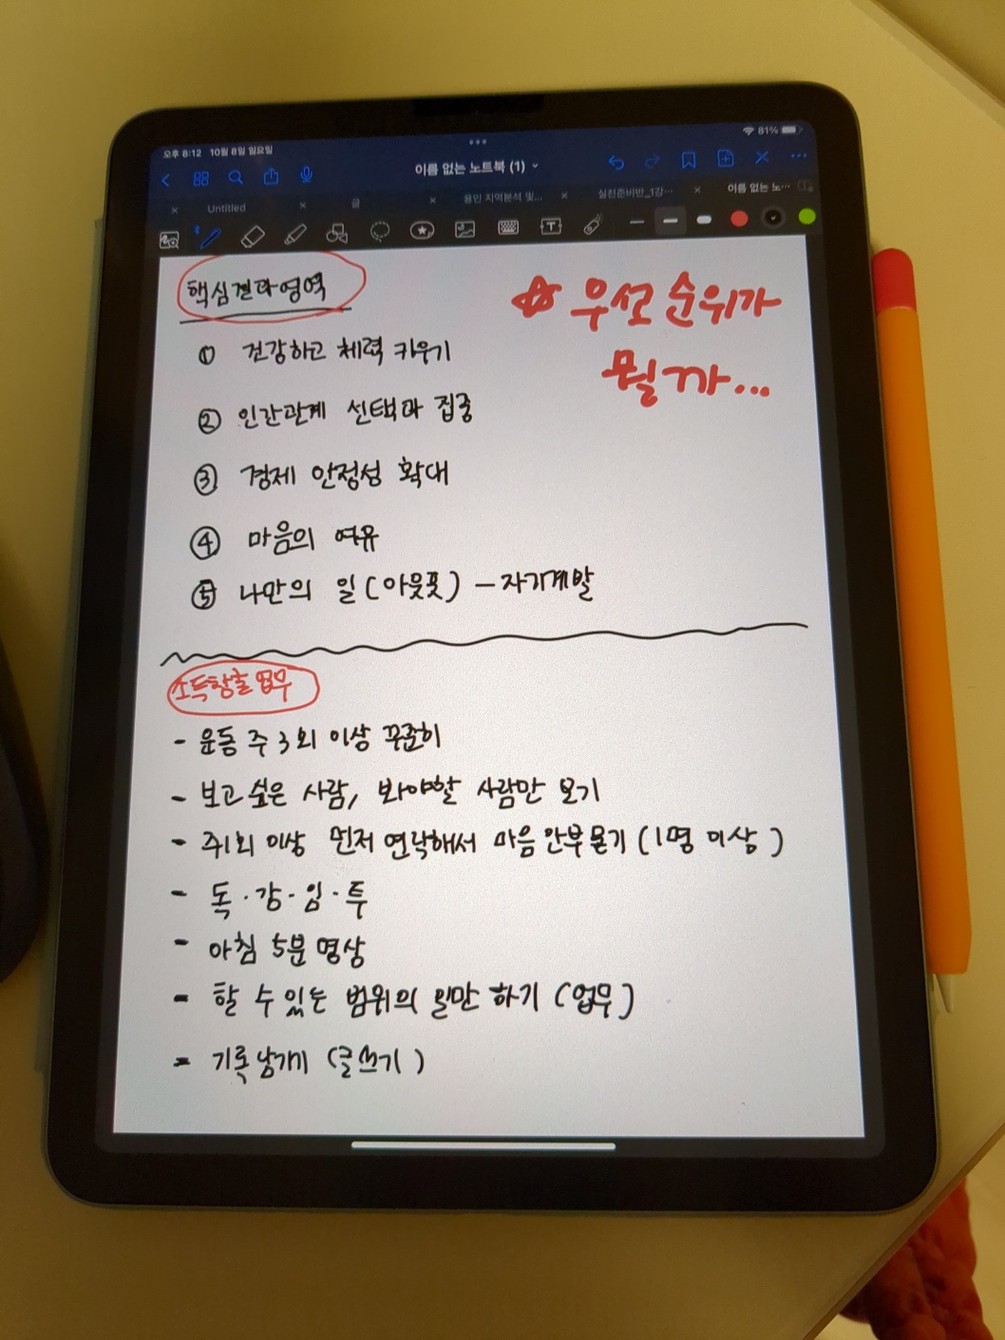 오후 8:12 10월 8일 일요일
81%
이름 없는 노트북 (1)
Untitled
글
용인 지역분석 및...
실전준비반_1강...
이름 없는 노...
핵심결과영역
☆ 우선순위가
뭘까...
① 건강하고 체력 키우기
② 인간관계 선택과 집중
③ 경제 안정성 확대
④ 마음의 여유
⑤ 나만의 일 (아웃풋) - 자기계발
소득창출업무
- 운동 주 3회 이상 꾸준히
- 보고 싶은 사람, 봐야할 사람만 보기
- 주1회 이상 먼저 연락해서 마음 안부묻기 (1명 이상)
- 독·강·임·투
- 아침 5분 명상
- 할 수 있는 범위의 일만 하기 (업무)
- 기록남기기 (글쓰기)